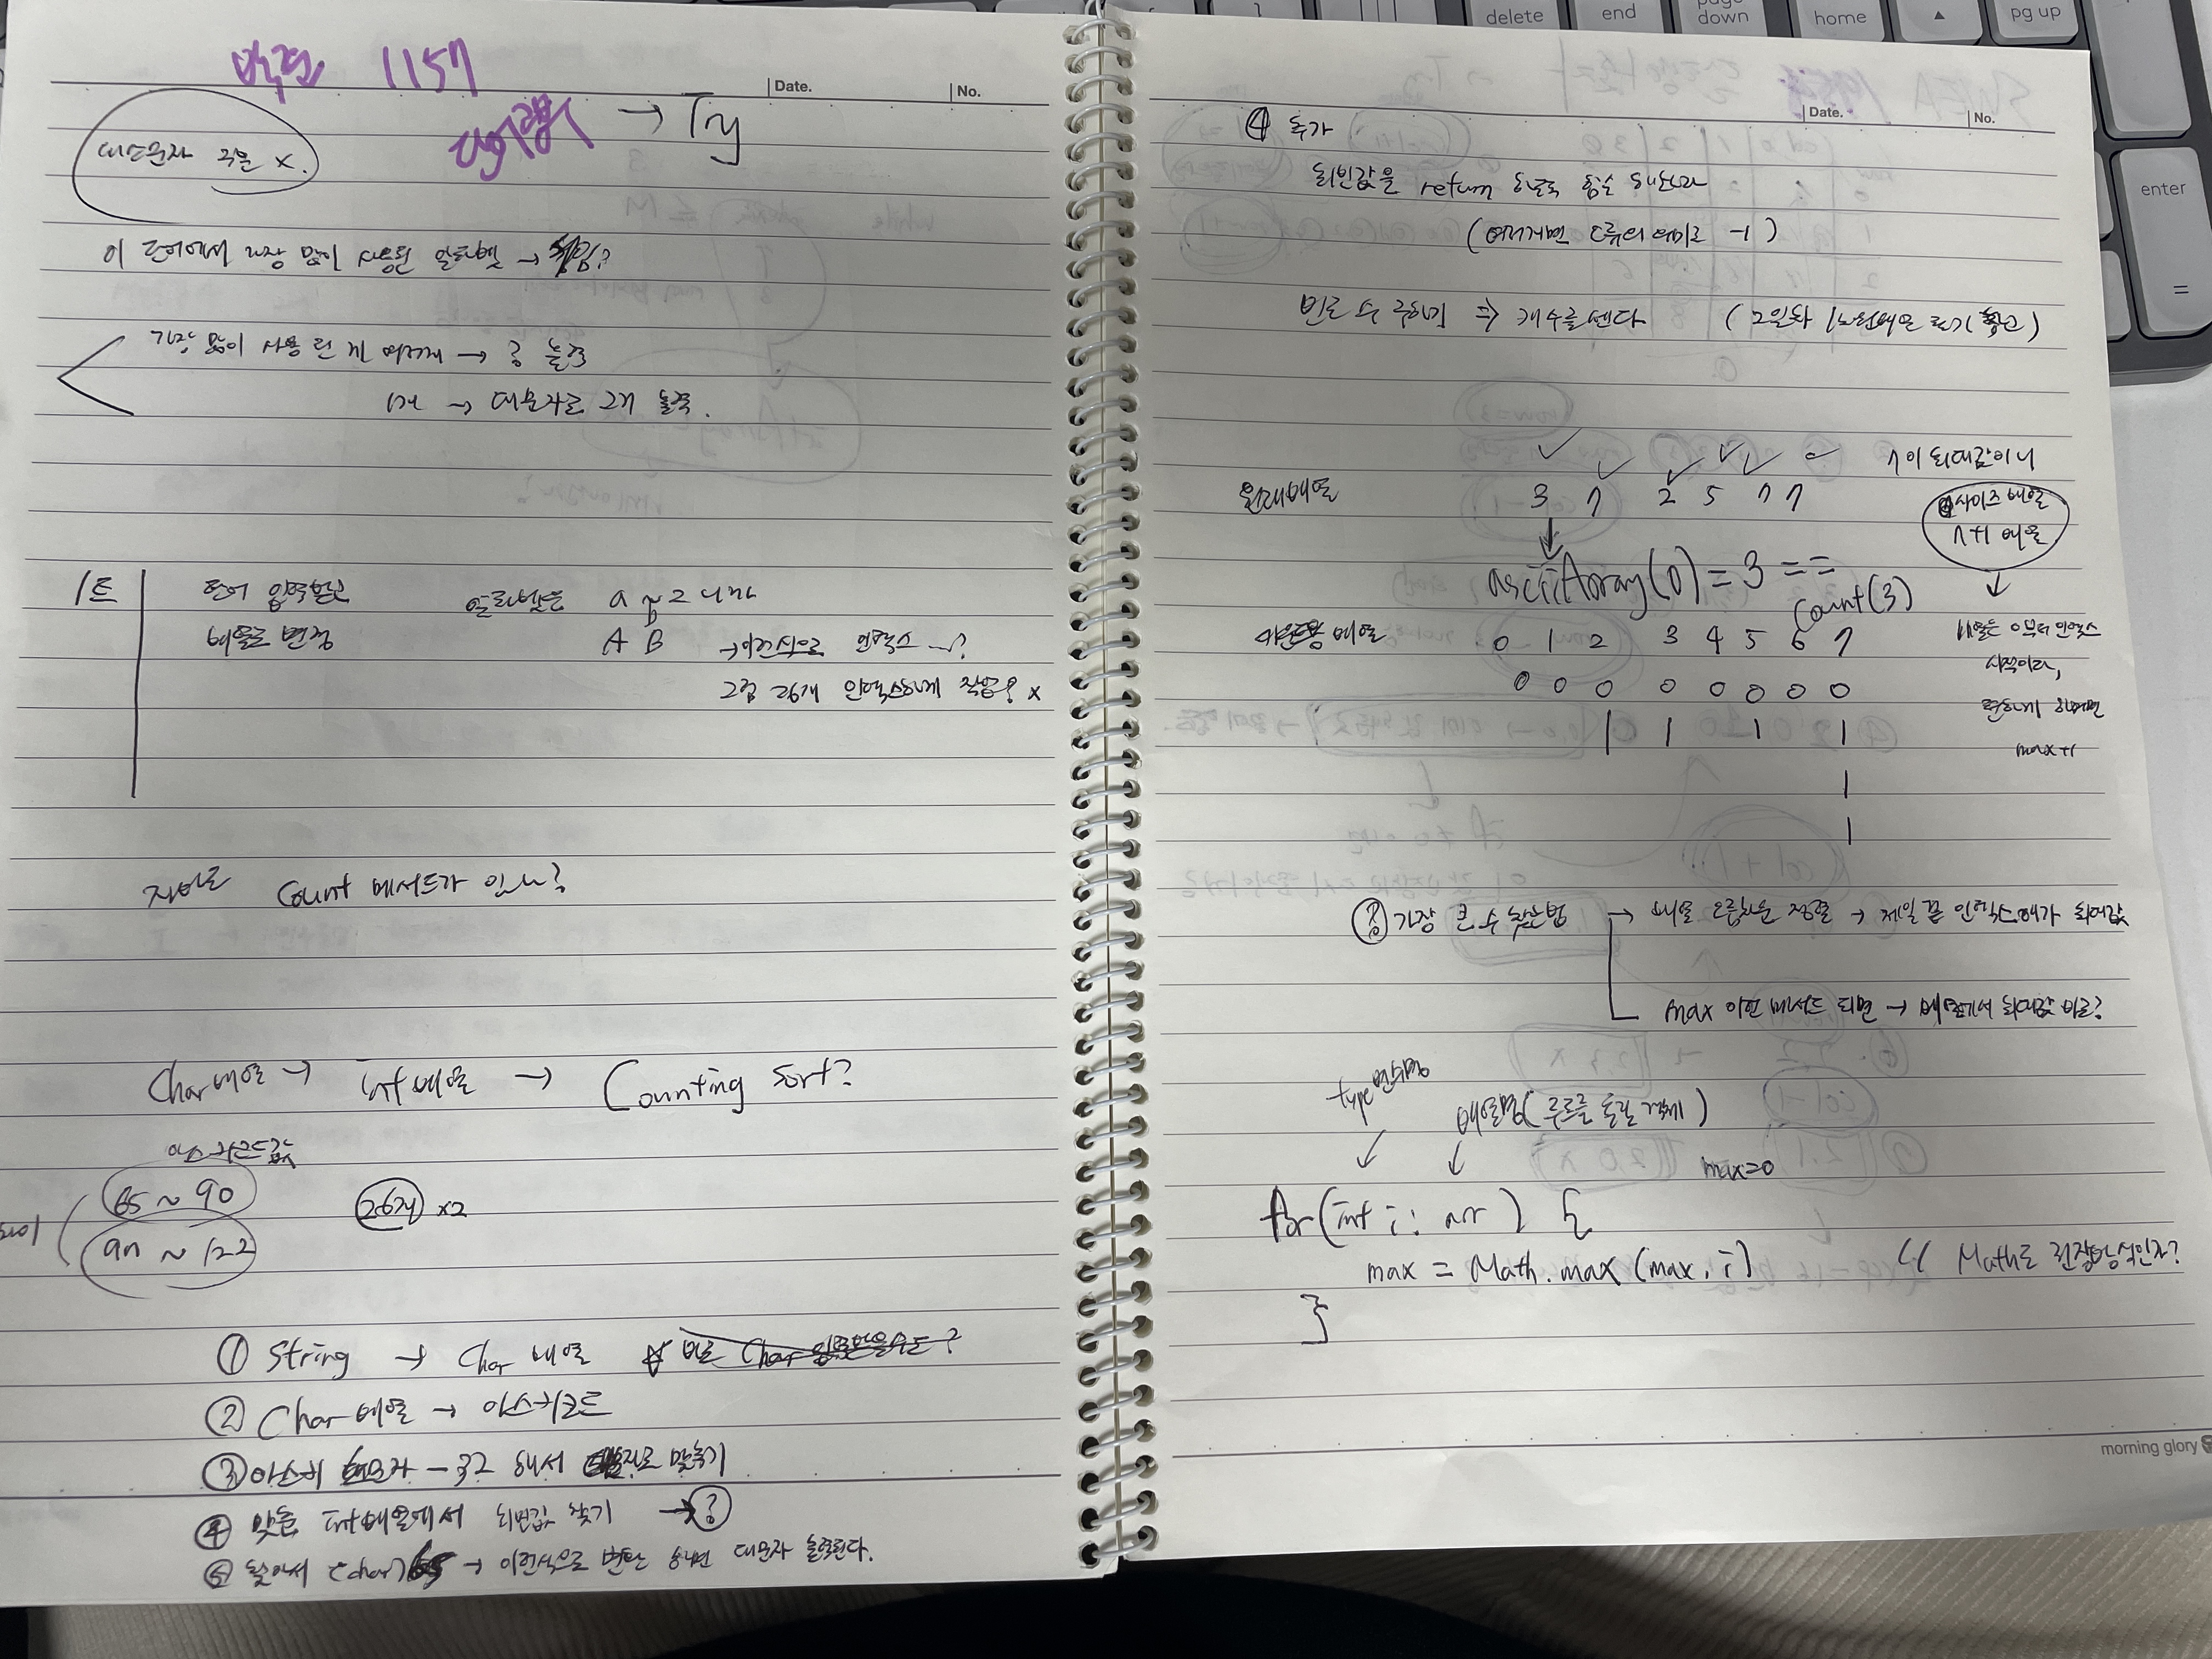 백준 1157
단어공부 → Try
Date.
No.
대소문자 구분 x.
이 단어에서 가장 많이 사용된 알파벳 →
가장 많이 사용 된 게 여러개 → ? 출력
1개 → 대문자로 2개 출력.
1트
단어 입력받고
배열로 변경
알파벳은 a ~ z 니까
A B → 이런식으로 인덱스 ...?
그럼 26개 인덱스하게 작업? x
자바도 Count 메서드가 있나?
Char 배열 → int 배열 → Counting Sort?
아스키코드값
65 ~ 90
97 ~ 122
26개 x2
① String → Char 배열
② Char 배열 → 아스키코드
③ 아스키 소문자 - 32 해서 대문자로 맞추기
④ 맞춘 int배열에서 최빈값 찾기 → ?
⑤ 찾아서 (char)65 → 이런식으로 변환 하면 대문자 출력된다.
Date.
No.
④ 추가
최빈값을 return 하도록 함수 해보자
(여러개면 오류의 의미로 -1)
빈도 수 구하기 ⇒ 개수를 센다
3 7 2 5 7 7
7이 최대값이니
원래배열
사이즈 배열
7+1 배열
asciiArray(0) = 3 ==
Count(3)
카운트용 배열 0 1 2 3 4 5 6 7
0 0 0 0 0 0 0 0
1 1 1 1
1
1
배열은 0부터 인덱스
시작이라,
편하게 하려면
max+1
? 가장 큰 수 찾는법 → 배열 오름차순 정렬 → 제일 끝 인덱스애가 최대값
max 이런 메서드 되면 → 배열에서 최대값 바로?
type 변수명
배열명(루프를 돌릴 객체)
max=0
for(int i : arr) {
max = Math.max(max, i)
}
morning glory